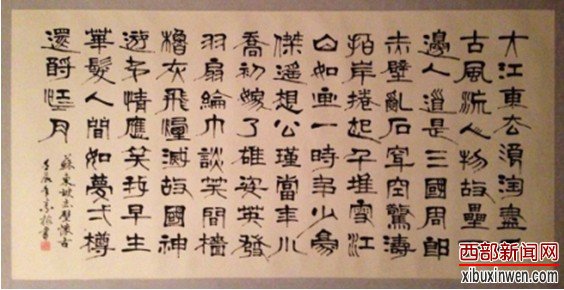 大江東去浪淘盡
古風流人物故壘
邊人道是三國周郎
赤壁亂石穿空驚濤
拍岸捲起千堆雪江
山如畫一時多少豪
傑遙想公瑾當年小
喬初嫁了雄姿英發
羽扇綸巾談笑間檣
櫓灰飛煙滅故國神
遊多情應笑我早生
華髮人間如夢弌樽
還酹江月
蘇東坡赤壁懷古
壬辰
書
西部新闻网
xibuxinwen.com